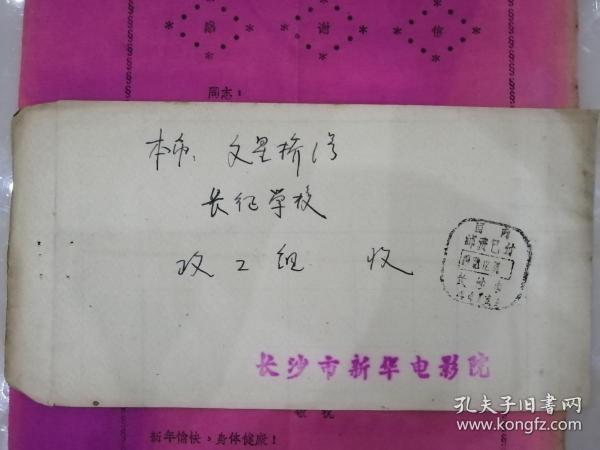 感 谢 信
同志:
本市、文星桥1号
长征学校
政工组 收
国内
邮资已付
长沙市
长沙市新华电影院
敬祝
新年愉快,身体健康!
孔夫子旧书网